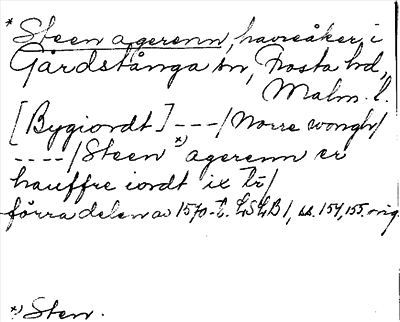 * Steen agerenn, havreåker, i
Gårdstånga sn, Frosta hd,
Malm. l.
[Bygiordt] - - - / Norre wongh /
- - - - / Steen *) agerenn er
hauffre iordt ix tr /
förra delen av 1570-t. LSLB 1, ss. 154, 155. orig.
*) Sten.